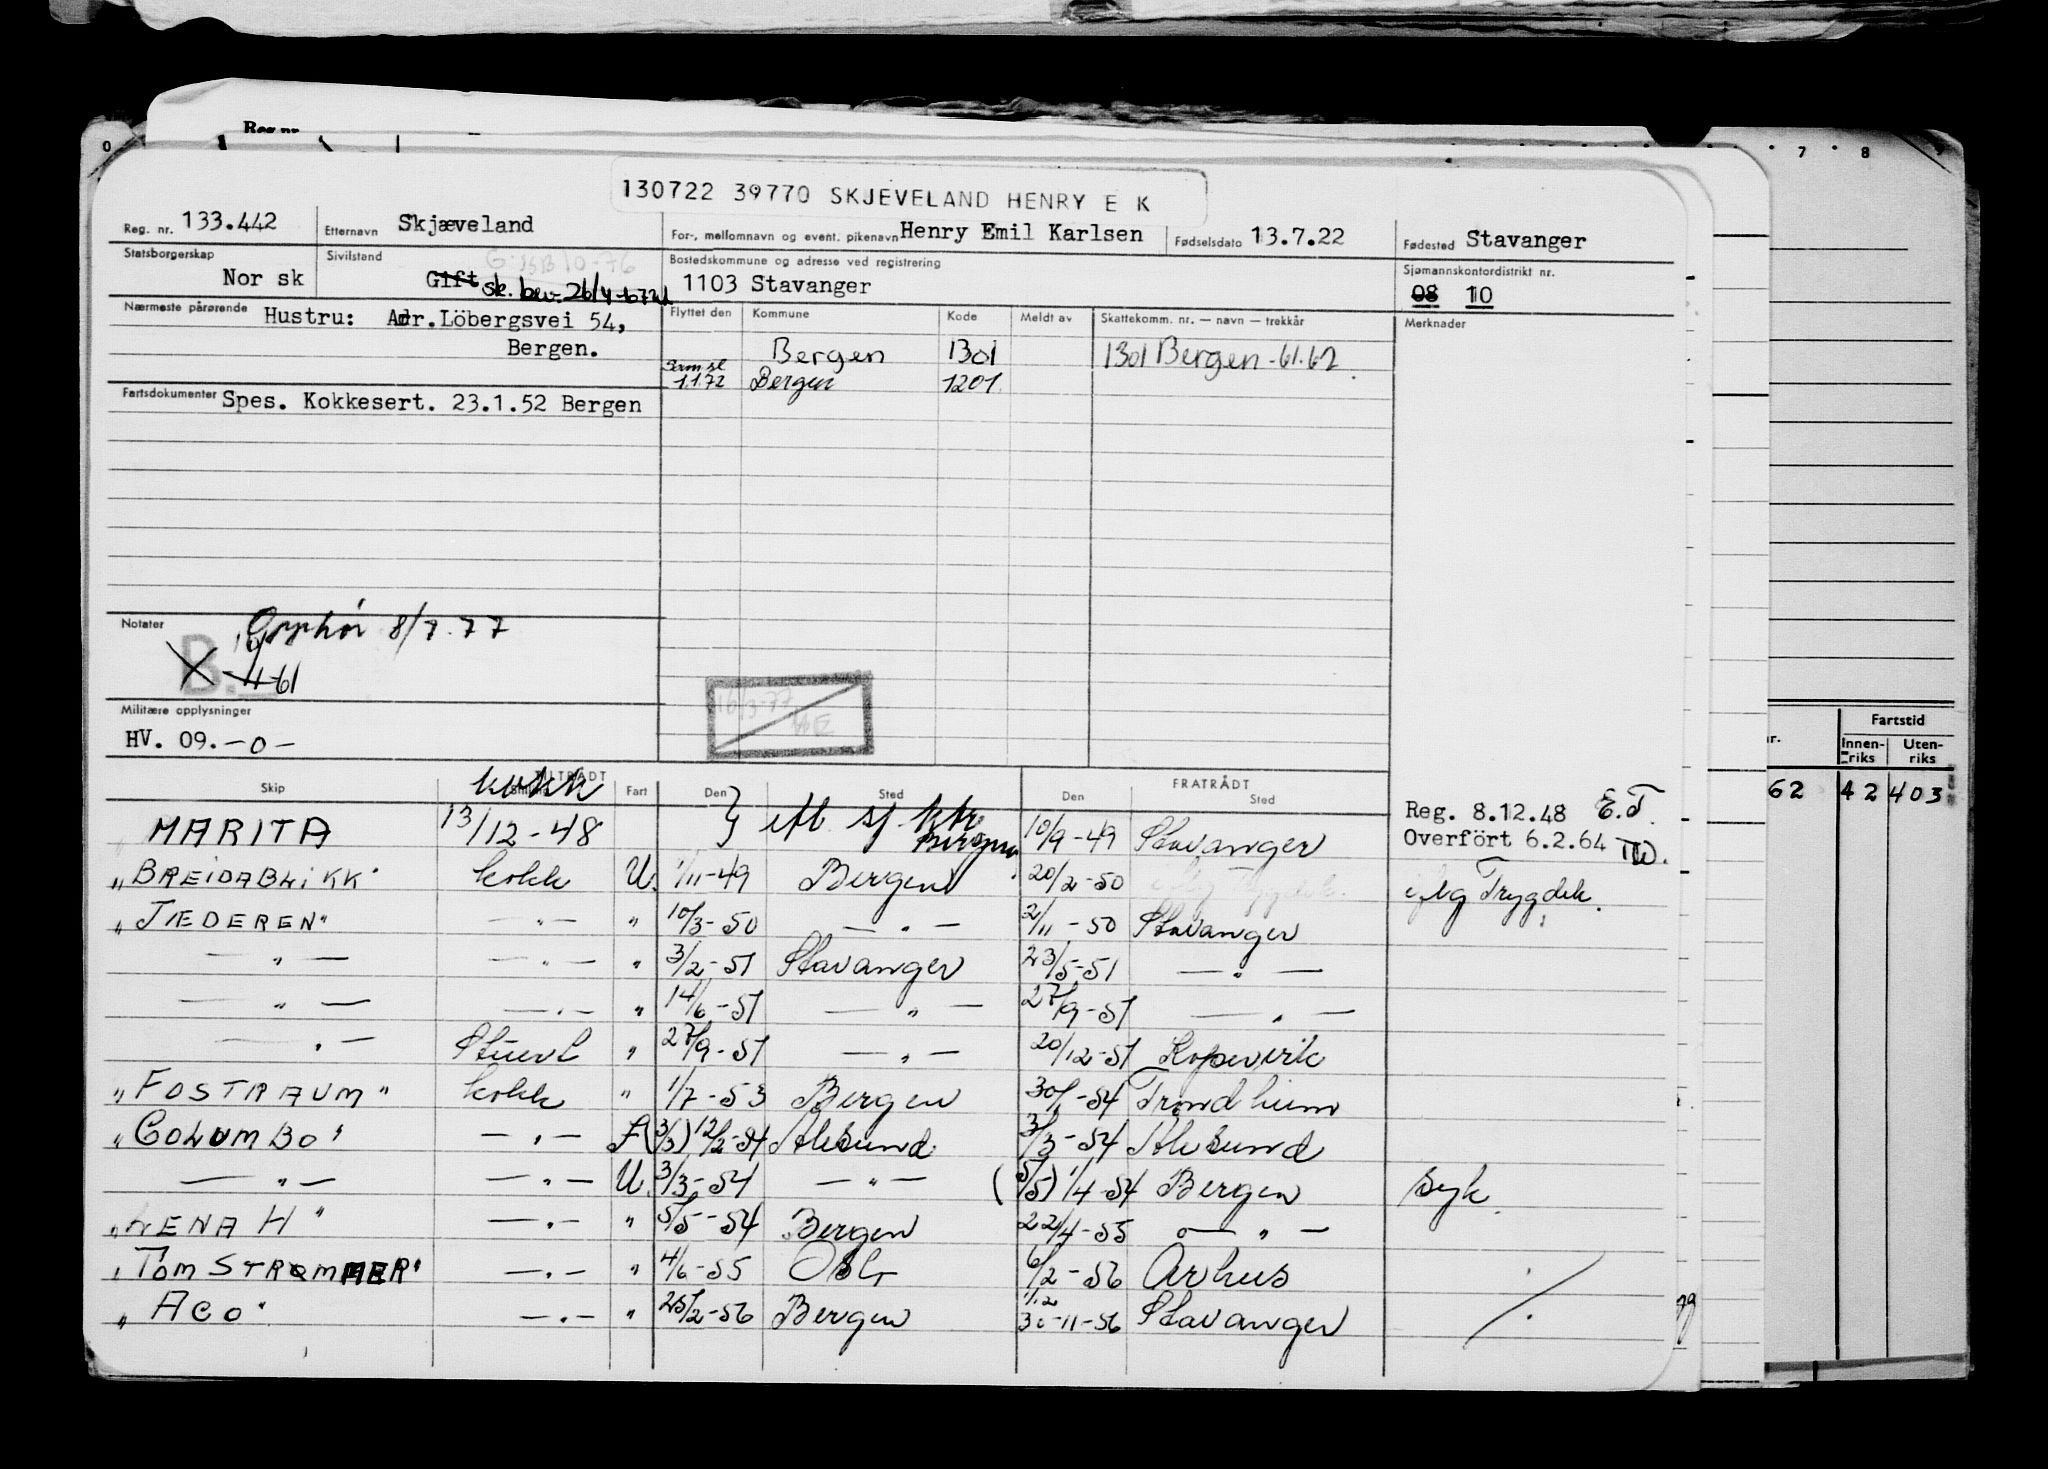 Reg. nr.
0
7 8
130722 39770 SKJEVELAND HENRY E K
Reg. nr. 133.442 Etternavn Skjæveland For-, mellomnavn og event. pikenavn Henry Emil Karlsen Fødselsdato 13.7.22 Fødested Stavanger
Statsborgerskap Sivilstand Bostedskommune og adresse ved registrering Sjømannskontordistrikt nr.
Norsk Gift sk. bev. 26/4-67 1103 Stavanger 08 10
Nærmeste pårørende Hustru: Adr. Löbergsvei 54,
Bergen.
Flyttet den Kommune Kode Meldt av Skattekomm. nr. — navn — trekkår Merknader
Bergen 1301 1301 Bergen -61.62
1.1.72 Bergen 1201
Fartsdokumenter Spes. Kokkesert. 23.1.52 Bergen
Notater Opphör 8/7.77
B.
4-61
16/3-77
Militære opplysninger
HV. 09.-0-
Fartstid
nr. Innen-riks Uten-riks
62 42 403
TILTRÅDT FRATRÅDT
Skip Stilling Fart Den Sted Den Sted
kokk
Reg. 8.12.48 E.T.
MARITA 13/12-48 } itl. sj.ktr. Bergen 10/9-49 Stavanger
Overfört 6.2.64 TW.
"BREIDABLIKK" kokk U. 1/11-49 Bergen 20/2-50 iflg Trygdek.
"JÆDEREN" —"— " 10/3-50 —"— 2/11-50 Stavanger
—"— —"— " 3/2-51 Stavanger 23/5-51 —"—
—"— —"— " 14/6-51 —"— 27/9-51 —"—
—"— Stuert " 27/9-51 —"— 20/12-51 Kopervik
"FOSTRAUM" kokk " 1/7-53 Bergen 30/1-54 Trondheim
"COLUMBO" —"— F (3/3) 12/2-54 Ålesund 3/3-54 Ålesund
—"— —"— U. 3/3-54 —"— (5/5) 1/4-54 Bergen Syk.
"LENA H" —"— " 5/5-54 Bergen 22/4-55 —"—
"TOM STRØMMER" —"— " 4/6-55 Oslo 6/2-56 Århus
"ACO" —"— " 25/2-56 Bergen 1/12 30-11-56 Stavanger ./.